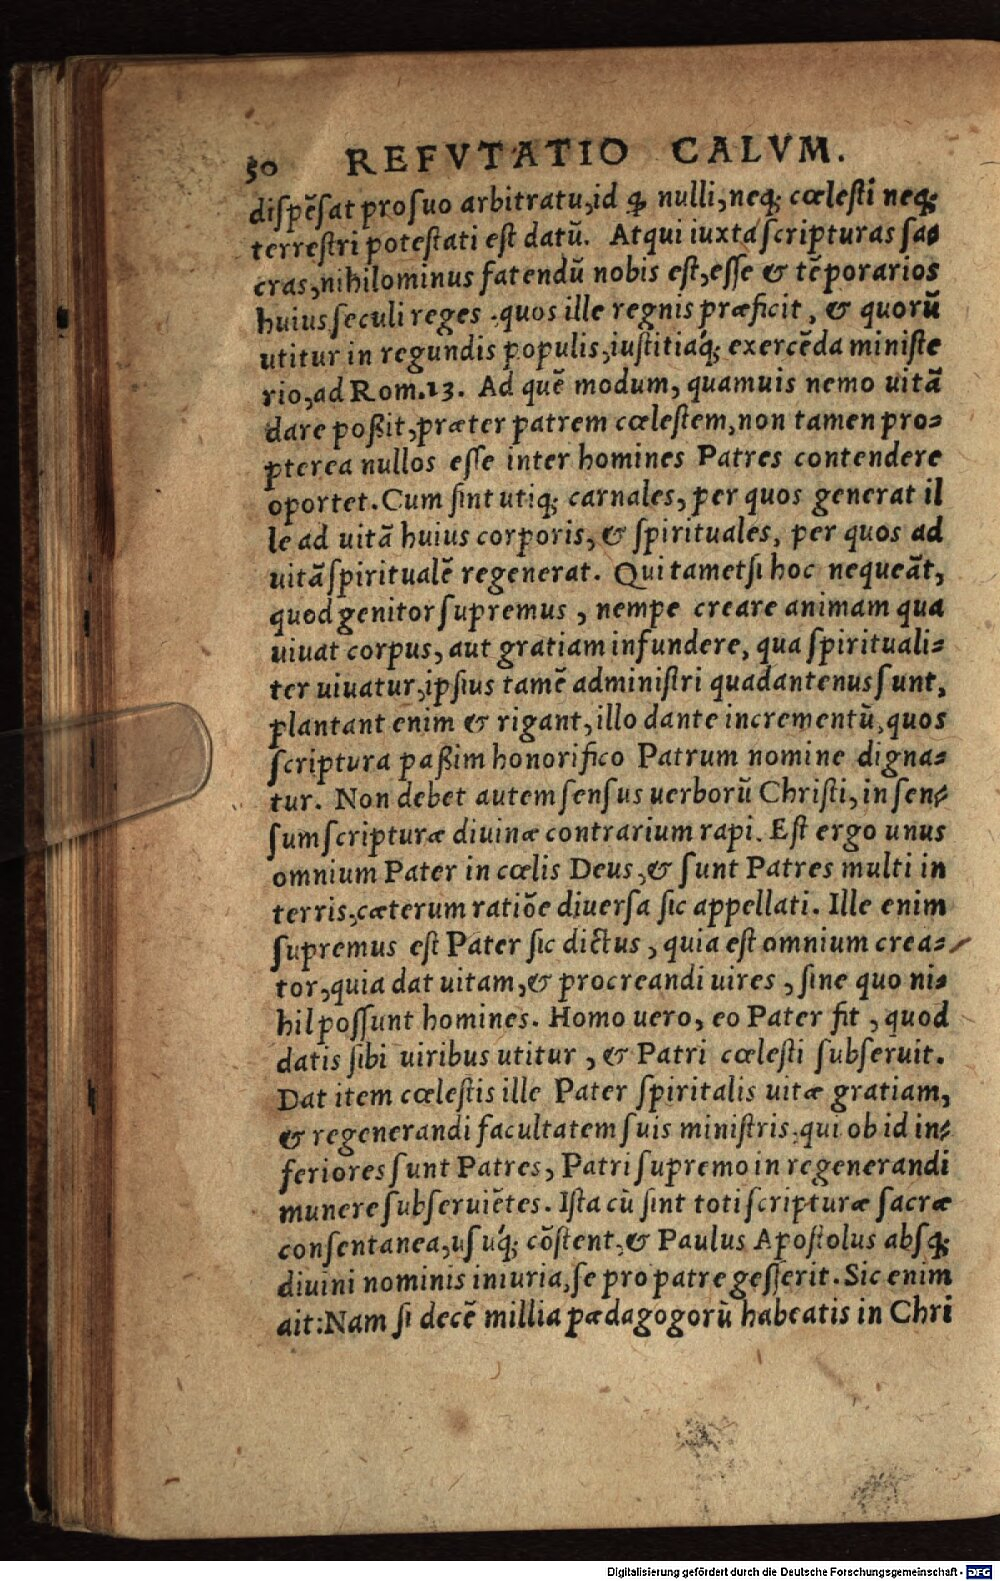 50 REFVTATIO CALVM.
dispēsat pro suo arbitratu, id ꝙ nulli, neq; cœlesti neq;
terrestri potestati est datū. Atqui iuxta scripturas sa-
cras, nihilominus fatendū nobis est, esse & tēporarios
huius seculi reges, quos ille regnis præficit, & quorū
utitur in regundis populis, iustitiáq; exercēda ministe
rio, ad Rom.13. Ad quē modum, quamuis nemo uitā
dare poßit, præter patrem cœlestem, non tamen pro-
pterea nullos esse inter homines Patres contendere
oportet. Cum sint utiq; carnales, per quos generat il
le ad uitā huius corporis, & spirituales, per quos ad
uitā spiritualē regenerat. Qui tametsi hoc nequeāt,
quod genitor supremus, nempe creare animam qua
uiuat corpus, aut gratiam infundere, qua spirituali-
ter uiuatur, ipsius tamē administri quadantenus sunt,
plantant enim & rigant, illo dante incrementū, quos
scriptura paßim honorifico Patrum nomine digna-
tur. Non debet autem sensus uerborū Christi, in sen-
sum scripturæ diuinæ contrarium rapi. Est ergo unus
omnium Pater in cœlis Deus, & sunt Patres multi in
terris, cæterum ratiōe diuersa sic appellati. Ille enim
supremus est Pater sic dictus, quia est omnium crea-
tor, quia dat uitam, & procreandi uires, sine quo ni-
hil possunt homines. Homo uero, eo Pater fit, quod
datis sibi uiribus utitur, & Patri cœlesti subseruit.
Dat item cœlestis ille Pater spiritalis uitæ gratiam,
& regenerandi facultatem suis ministris, qui ob id in-
feriores sunt Patres, Patri supremo in regenerandi
munere subseruiētes. Ista cù sint toti scripturæ sacræ
consentanea, usúq; cōstent, & Paulus Apostolus absq;
diuini nominis iniuria, se pro patre gesserit. Sic enim
ait: Nam si decē millia pædagogorū habeatis in Chri
Digitalisierung gefördert durch die Deutsche Forschungsgemeinschaft - DFG